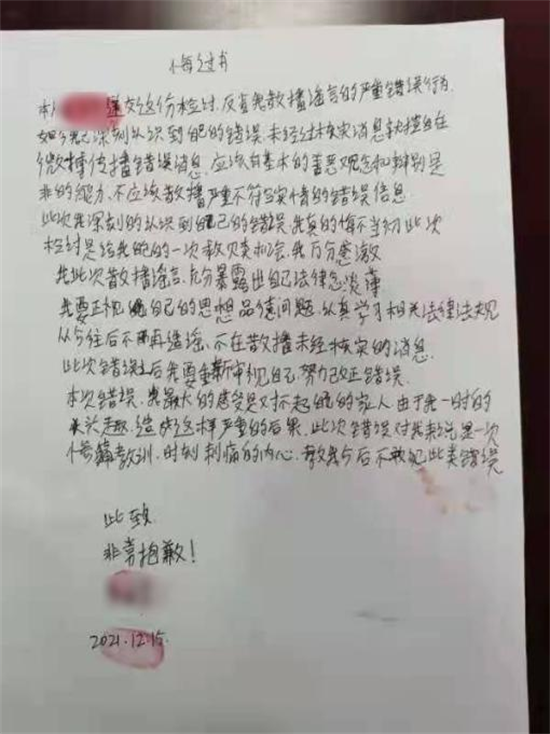 悔过书
本人 递交这份检过,反省我散播谣言的严重错误行为,
如今我已深刻认识到自己的错误未经过核实消息就擅自在
微博传播错误消息,应该有基本的善恶观念和辩别是
非的能力,不应该散播严重不符合实情的错误信息
此次我深刻的认识到自己的错误,我真的悔不当初此次
检讨是给我的一次救赎机会,我万分感激
我此次散播谣言,充分暴露出自己法律意淡薄
我要正视自己的思想品德问题,认真学习相关法律法规
从今往后不再造谣、不在散播未经核实的消息.
此次错误后我要重新审视自己,努力改正错误.
本次错误,我最大的感受是对不起我的家人由于我一时的
趣,造成这样严重的后果,此次错误对我来说是一次
惨痛教训,时刻刺痛的内心,教我今后不敢犯此类错误
此致
非常抱歉!
2021.12.15.